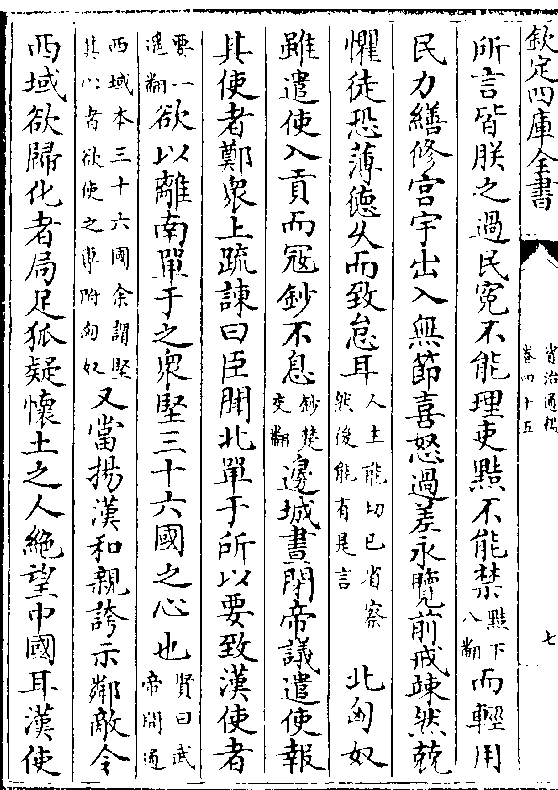 欽定四庫全書
資治通鑑
卷四十五
七
所言皆朕之過民冤不能理吏黠不能禁黠下八翻而輕用
民力繕修宫宇出入無節喜怒過差永覽前戒竦然兢
懼徒恐薄德久而致怠耳人主能切已省察然後能有是言 北匈奴
雖遣使入貢而冦鈔不息鈔楚交翻邊城晝閉帝議遣使報
其使者鄭衆上疏諫曰臣聞北單于所以要致漢使者
要一遥翻欲以離南單于之衆堅三十六國之心也賢曰武帝開通
西域本三十六國余謂堅其心者欲使之專附匈奴又當揚漢和親誇示鄰敵令
西域欲歸化者局足狐疑懷土之人絶望中國耳漢使